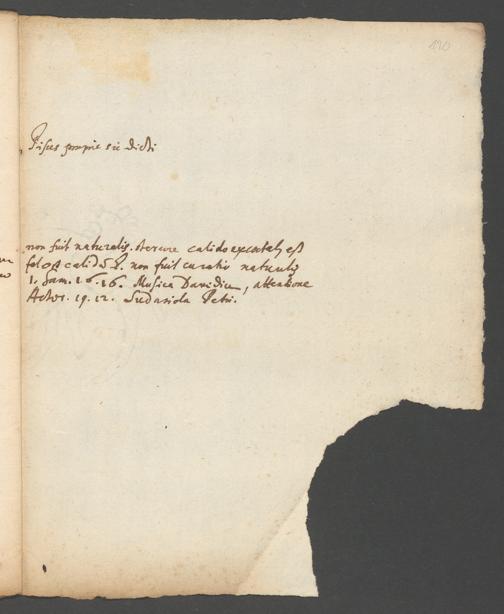 190
Pisces proprie sic dicti
non fuit naturalis. stercore calido excæcatus est
calido. non fuit curatio naturalis
1. Sam. 16. 16. Musica Davidica, attentione
Actor. 19. 12. Sudariola Petri.